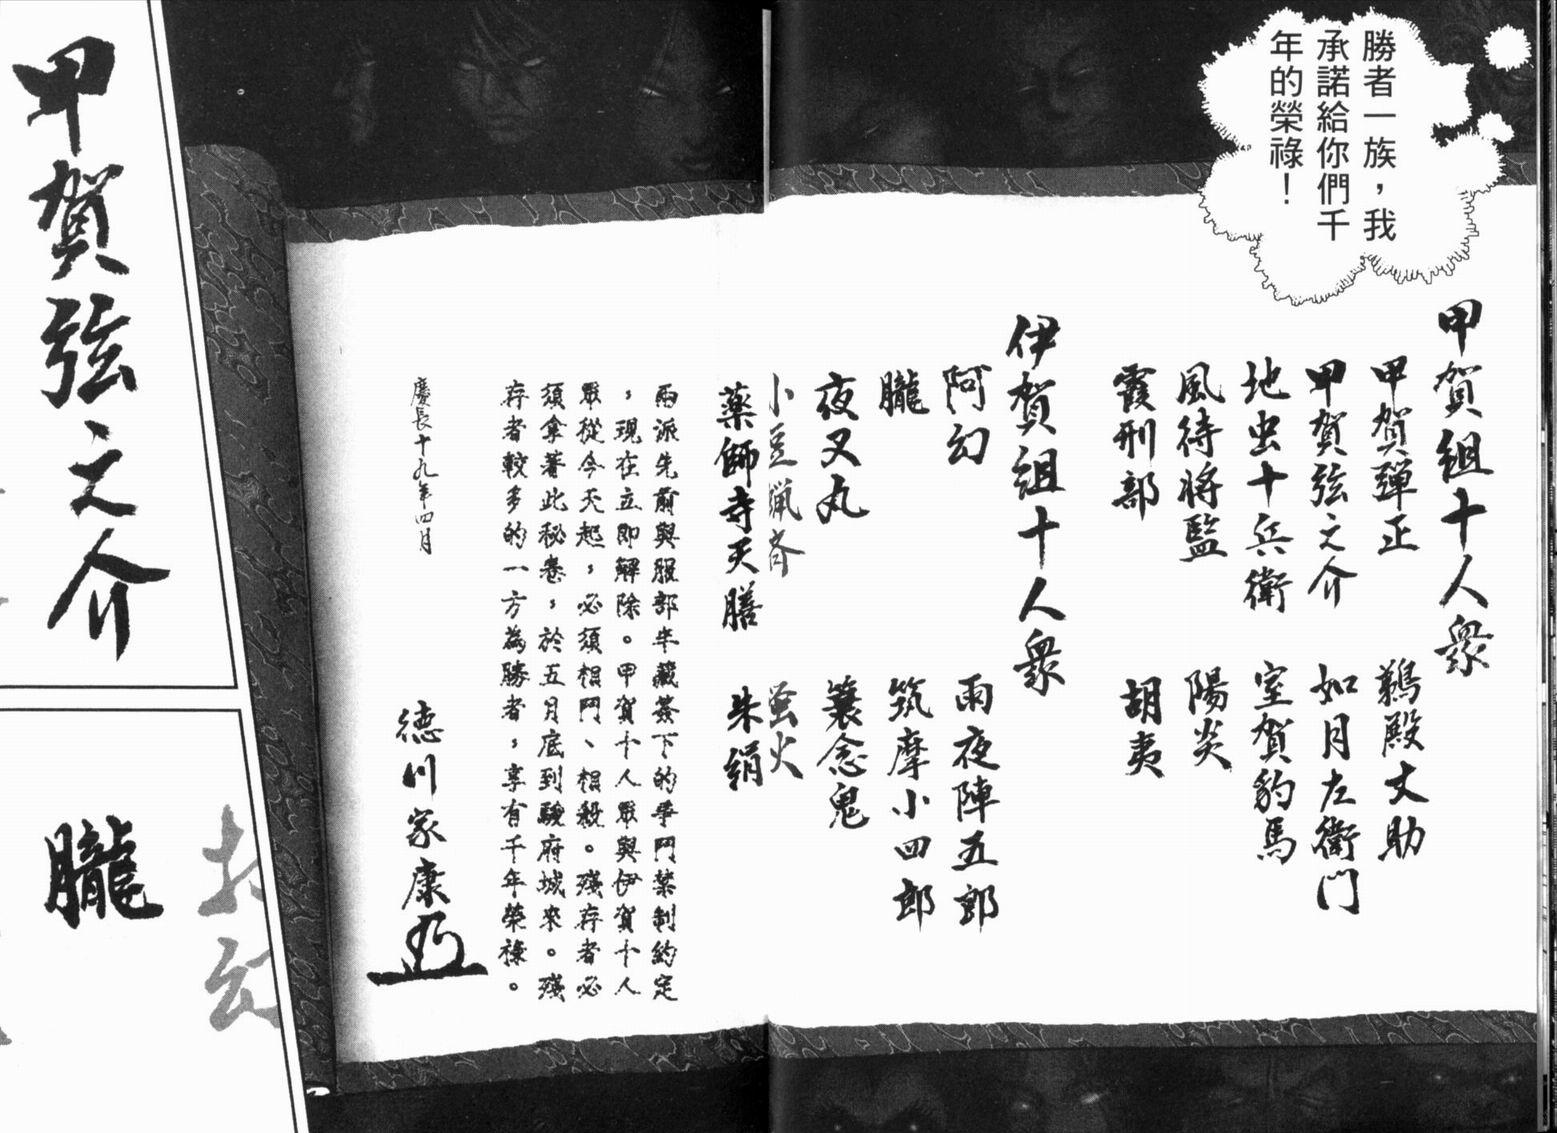 勝者一族，我
承諾給你們千
年的榮祿！
甲賀組十人衆
甲賀弾正
鵜殿丈助
甲賀弦之介
如月左衛門
地虫十兵衛
室賀豹馬
風待将監
陽炎
霞刑部
胡夷
伊賀組十人衆
阿幻
雨夜陣五郎
朧
筑摩小四郎
夜叉丸
簑念鬼
小豆蝋斉
蛍火
薬師寺天膳
朱絹
兩派先前與服部半藏簽下的爭鬥禁制約定
，現在立即解除。甲賀十人眾與伊賀十人
眾從今天起，必須相鬥、相殺。殘存者必
須拿著此秘卷，於五月底到駿府城來。殘
存者較多的一方為勝者，享有千年榮祿。
慶長十九年四月
德川家康
甲賀弦之介
朧